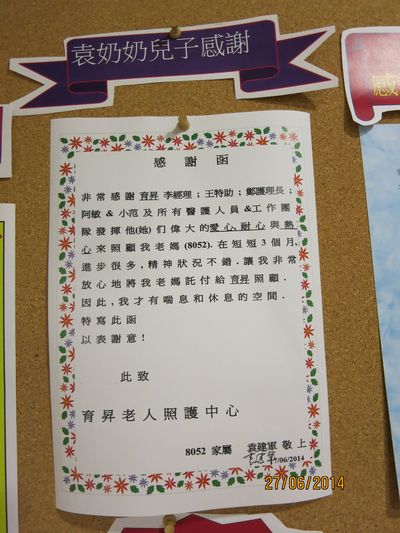 袁奶奶兒子感謝
感
感謝函
非常感謝育昇 李經理；王特助；鄭護理長；
阿敏 & 小范及所有醫護人員 & 工作團
隊發揮他(她)们偉大的愛心, 耐心與熱
心來照顧我老媽 (8052). 在短短 3 個月,
進步很多, 精神狀況不錯. 讓我非常
放心地將我老媽託付給育昇照顧.
因此, 我才有喘息和休息的空間.
特寫此函
以表謝意！
此致
育昇老人照護中心
8052 家屬 袁建軍 敬上
袁建軍 7/06/2014
27/06/2014